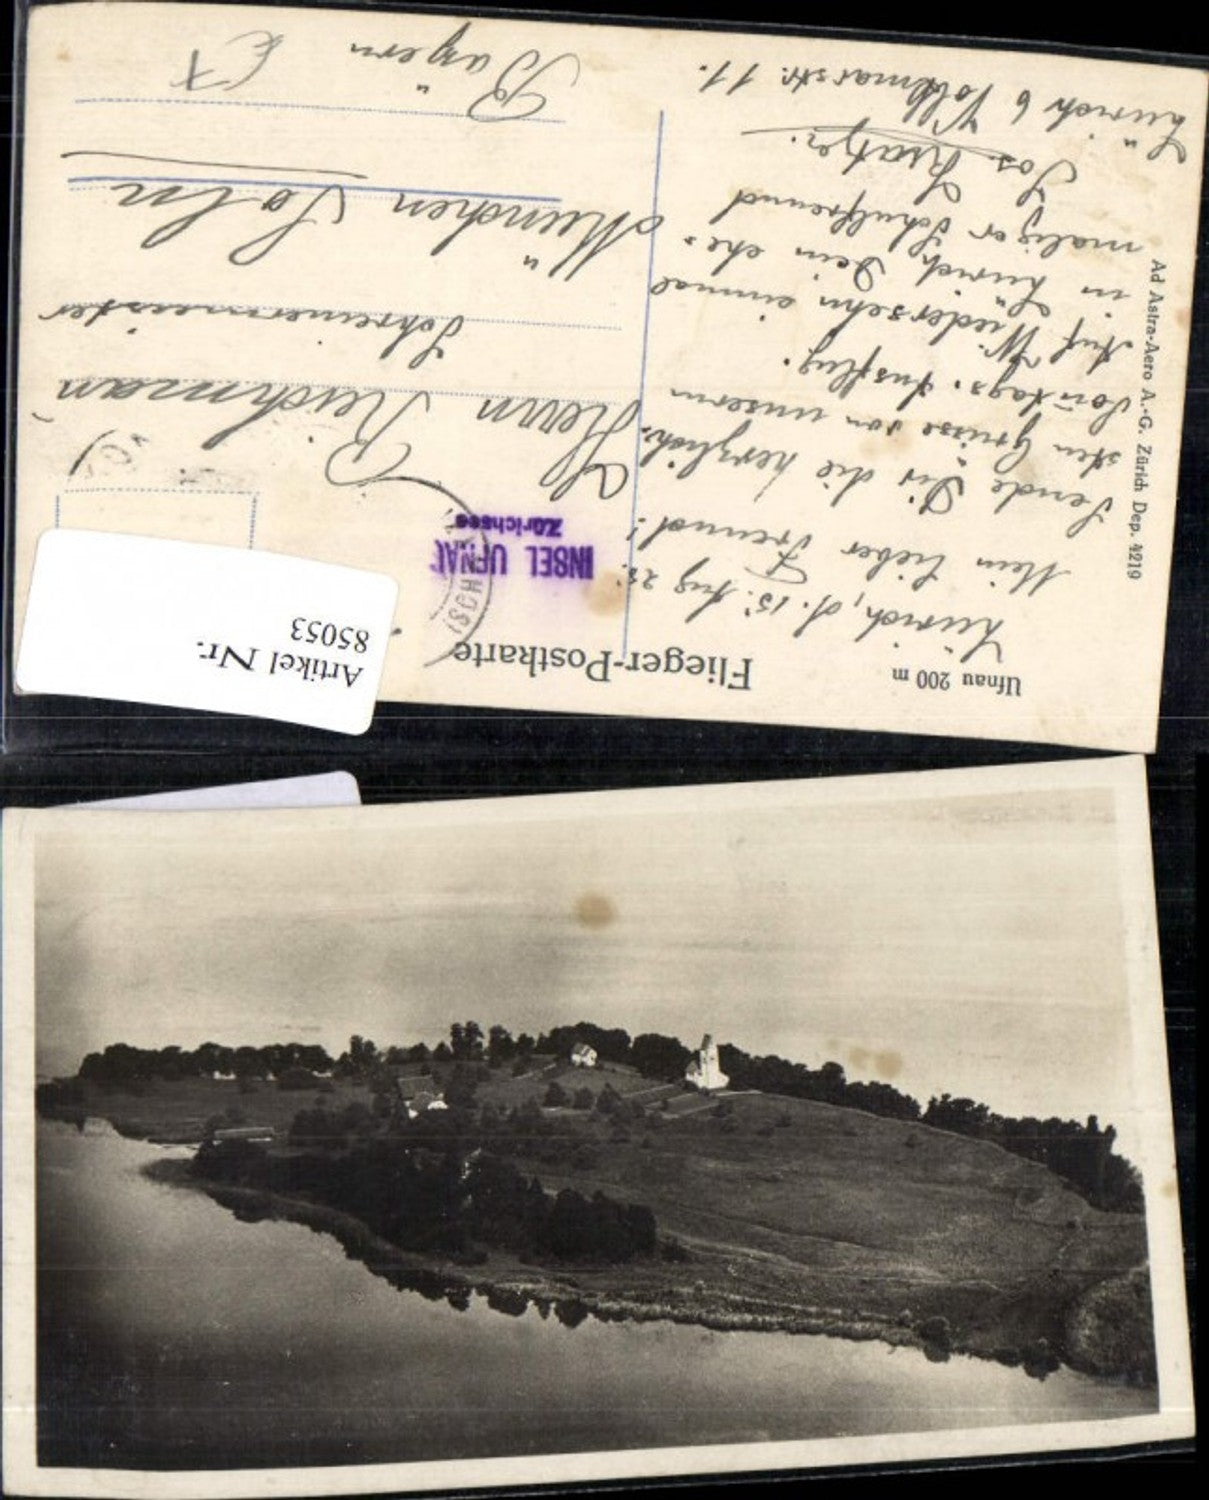 Ufnau 200 m
Flieger-Postkarte
Artikel Nr.
85053
INSEL UFNAU
Zürichsee
Zürich, d. 15. Aug 25.
Mein lieber Freund!
Sende Dir die herzlich-
sten Grüsse von unserm
Sontags. Ausflug.
Auf Wiedersehn einmal
in Zürich, Dein ehe-
maliger Schulfreund
Jos.
Zürich 6 11.
Herrn Reichman
Schreinermeister
München Soln
Bayern
Ad Astra-Aero A.-G. Zürich Dep. 4219